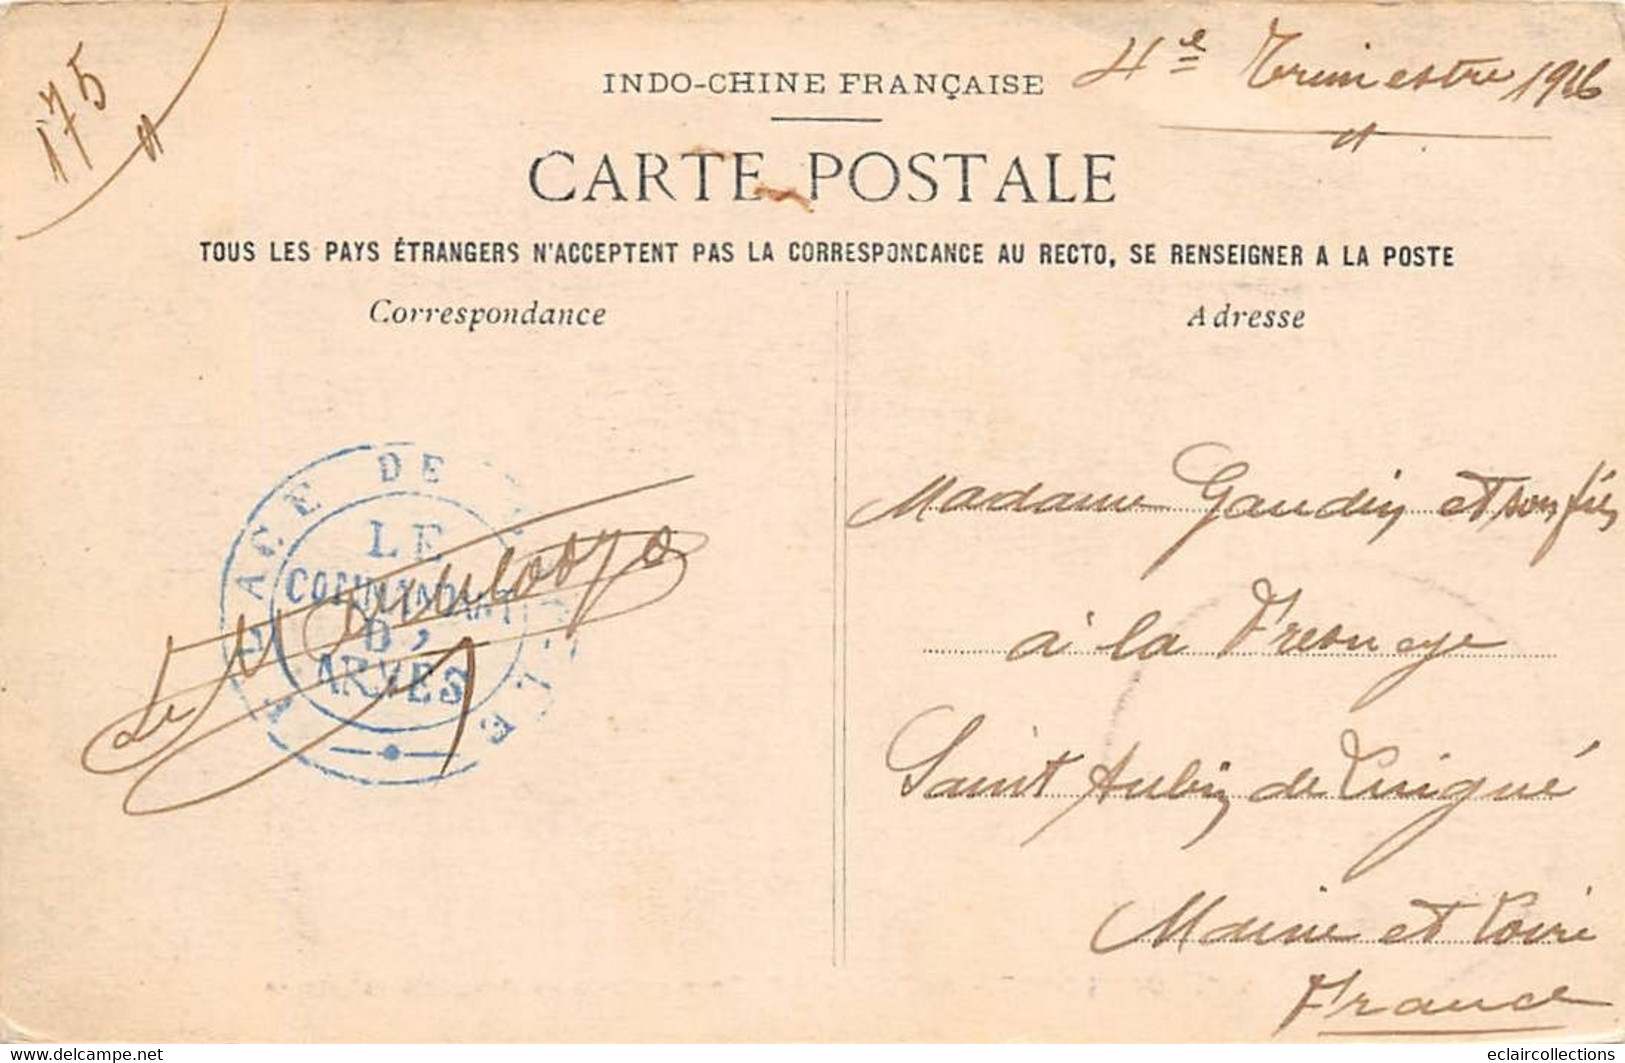 175
4e Trimestre 1916
INDO-CHINE FRANÇAISE
CARTE POSTALE
TOUS LES PAYS ÉTRANGERS N'ACCEPTENT PAS LA CORRESPONDANCE AU RECTO, SE RENSEIGNER A LA POSTE
Correspondance
Adresse
PLACE DE
LE
COMMANDANT
D'
ARMES
Madame Gaudin et son fils
à la Fresnaye
Saint Aubin de Luigné
Maine et Loire
France
www.delcampe.net
eclaircollections